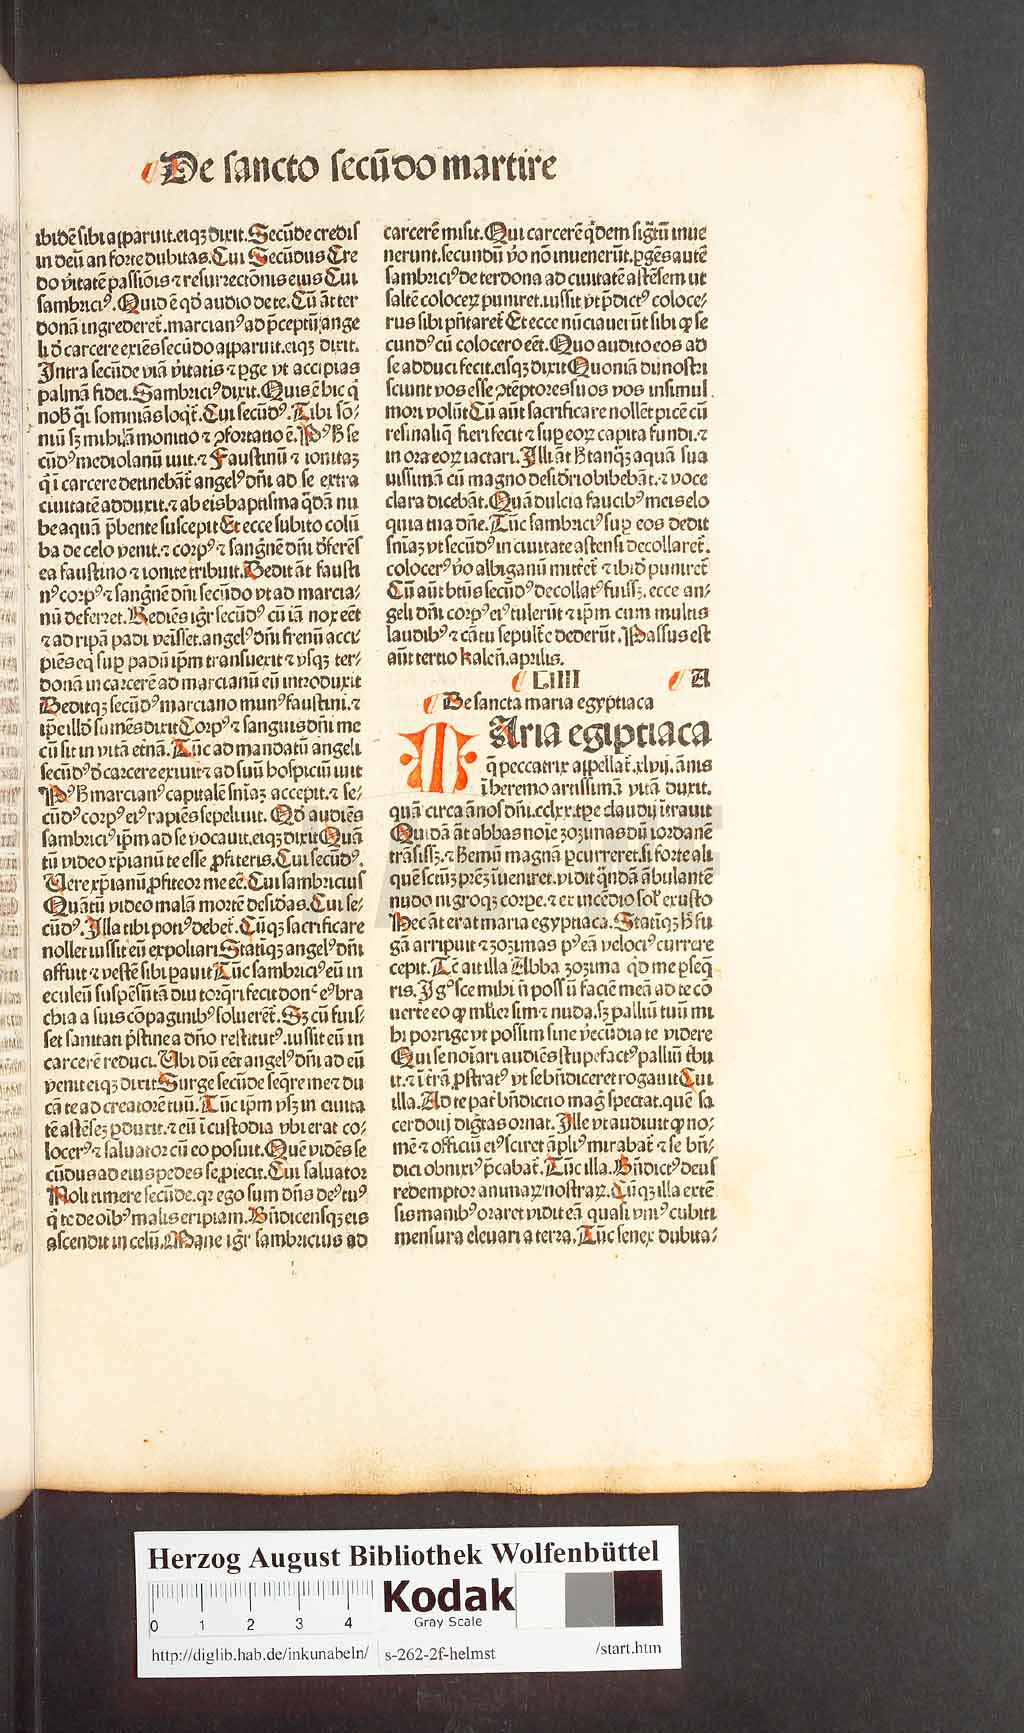 De sancto secūdo martire
ibidē sibi apparuit.eiqꝫ dixit. Secūde credis
in deū an forte dubitas. Cui Secūdus Cre
do v̾itatē passiōis ⁊ resurrectōnis eius Cui
sambriciꝰ. Quid ē qd̾ audio de te. Cū āt ter
donā ingrederet᷑.marcianꝰ ad p̄ceptū ange
li d̾ carcere exiēs secūdo apparuit.eiqꝫ dixit.
Intra secūde viā v̾itatis ⁊ ꝑge vt accipias
palmā fidei. Sambriciꝰ dixit. Quis ē hic q̇
nob̾ q̇i somniās loqt᷑. Cui secūdꝰ. Tibi sō-
niū sꝫ mihi āmonitio ⁊ ꝯfortatio ē. Pꝰ h̾ se
cūdꝰ mediolanū iuit.⁊ Faustinū ⁊ ionitaꝫ
q̇ i carcere detinebāt᷑ angelꝰ dn̄i ad se extra
ciuitatē adduxit.⁊ ab eis baptisma q̄dā nu
be aquā p̄bente suscepit Et ecce subito colū
ba de celo venit.⁊ corpꝰ ⁊ sangnē dn̄i d̾ferēs
ea faustino ⁊ ionite tribuit. Dedit āt fausti
nꝰ corpꝰ ⁊ sangnē dn̄i secūdo vt ad marcia-
nū deferret. Rediēs igr̄ secūdꝰ cū iā nox eēt
⁊ ad ripā padi veisset.angelꝰ dn̄i frenū acci
piēs eq̇ suꝑ padū ip̄m transuexit ⁊ vsqꝫ ter-
donā in carcerē ad marcianū eū introduxit
Deditqꝫ secūdꝰ marciano munꝰ faustini.⁊
ip̄e illd̾ sumēs dixit Corpꝰ ⁊ sanguis dn̄i me
cū sit in vitā etnā. Tūc ad mandatū angeli
secūdꝰ d̾ carcere exiuit ⁊ ad suū hospiciū iuit
Pꝰ h̾ marcianꝰ capitalē sn̄iaꝫ accepit.⁊ se-
cūdꝰ corpꝰ eiꝰ rapiēs sepeliuit. Qd̾ audiēs
sambriciꝰ ip̄m ad se vocauit.eiqꝫ dixit Quā
tū video xp̄ianū te esse ꝓfiteris. Cui secūdꝰ.
Uere xp̄ianū ꝓfiteor me eē. Cui sambricius
Quātū video malā mortē desid̾as. Cui se-
cūdꝰ. Illa tibi potiꝰ debet᷑. Cūqꝫ sacrificare
nollet iussit eū expoliari Statīqꝫ angelꝰ dn̄i
affuit ⁊ vestē sibi ꝑauit Tūc sambriciꝰ eū in
eculeū suspēsū tā diu torq̄ri fecit donc̄ eꝰ bra
chia a suis cōpaginibꝰ soluerēt᷑. Sꝫ cū fuis-
set sanitati p̄stine a dn̄o restitutꝰ.iussit eū in
carcerē reduci. Ubi dū eēt angelꝰ dn̄i ad eū
venit eiqꝫ dixit Surge secūde seq̄re me ⁊ du
cā te ad creatorē tuū. Tūc ip̄m vsqꝫ in ciuita
tē astēseꝫ ꝑduxit.⁊ eū ī custodia vbi erat co-
locerꝰ ⁊ saluator cū eo posuit. Quē vidēs se
cūdus ad eius pedes se ꝓiecit. Cui saluator
Noli timere secūde.qꝛ ego sum dn̄s deꝰ tuꝰ
q̇ te de oīb ꝰ malis eripiam. Bn̄dicensqꝫ eis
ascendit in celū. Mane igr̄ sambricius ad
carcerē misit. Qui carcerē q̇dem sigtū inue
nerunt.secundū v̾o nō inuenerūt. ꝑgēs autē
sambriciꝰ de terdona ad ciuitatē astēsem ut
saltē coloceꝝ puniret.iussit vt p̄dictꝰ coloce-
rus sibi pn̄taret᷑ Et ecce nūcia ueiūt sibi qꝫ se
cundꝰ cū colocero eēt. Quo audito eos ad
se adduci fecit.eisqꝫ dixit Quoniā dij nostri
sciunt vos esse ꝯtēptores suos vos insimul
mori volūt Cū aūt sacrificare nollēt picē cū
resina liq̄ fieri fecit ⁊ suꝑ eoꝝ capita fundi.⁊
in ora eoꝝ iactari. Illi āt h̾ tanq̄ꝫ aquā sua
uissimā cū magno desid̾io bibebāt.⁊ voce
clara dicebāt. Quā dulcia faucibꝰ meis elo
quia tua dn̄e. Tūc sambriciꝰ suꝑ eos dedit
sn̄iaꝫ vt secūdꝰ in ciuitate astensi decollaret᷑.
colocerꝰ v̾o albiganū mittet᷑ ⁊ ibid̾ puniret᷑
Cū aūt bt̄us secūdꝰ decollatꝰ fuissꝫ.ecce an-
geli dn̄i corpꝰ eiꝰ tulerūt ⁊ ip̄m cum multis
laudibꝰ ⁊ cātu sepult̄e dederūt. Passus est
aūt tertio kaleñ.aprilis.
LIIII A
De sancta maria egyptiaca
MAria egiptiaca
q̄ peccatrix appellat᷑.xlvij.ānis
ī heremo artissimā vitā duxit.
quā circa ānos dn̄i.cclxx.tꝑe claudij ītrauit
Quidā āt abbas noīe zozimas dū iordanē
trāsissꝫ.⁊ hemū magnā ꝑcurreret.si forte ali
quē sctm̄ prēꝫ īueniret.vidit q̄ndā ābulantē
nudo nigroqꝫ corꝑe.⁊ ex incēdio sol̾ exusto
Hec āt erat maria egyptiaca. Statīqꝫ h̾ fu
gā arripuit ⁊ zozimas pꝰ eā velociꝰ currere
cepit. Tc̄ ait illa Abba zozima qd̾ me ꝑseq̄
ris. Igꝰsce mihi ñ possū faciē meā ad te cō
uerte eo qꝫ ml̾ier sim ⁊ nuda.sꝫ palliū tuū mi
hi porrige vt possim sine v̾ecūdia te videre
Qui se noīari audiēs stupefactꝰ palliū tbu
it.⁊ ī trā ꝓstratꝰ vt se bn̄diceret rogauit Cui
illa. Ad te pat᷑ bn̄dictio mag̾ spectat.quē sa
cerdotij dig̾tas ornat. Ille vt audiuit qꝫ no-
mē ⁊ officiū eiꝰ sciret āpliꝰ mirabat᷑ ⁊ se bn̄-
dici obnixiꝰ p̄cabat᷑. Tūc illa. Bn̄dictꝰ deus
redemptor animaꝝ nostraꝝ. Cūqꝫ illa extē
sis manibꝰ oraret vidit eā quasi vniꝰ cubiti
mensura eleuari a terra. Tūc senex dubita-
Herzog August Bibliothek Wolfenbüttel
0 1 2 3 4
Kodak
Gray Scale
http://diglib.hab.de/inkunabeln/ s-262-2f-helmst /start.htm
HAB WF